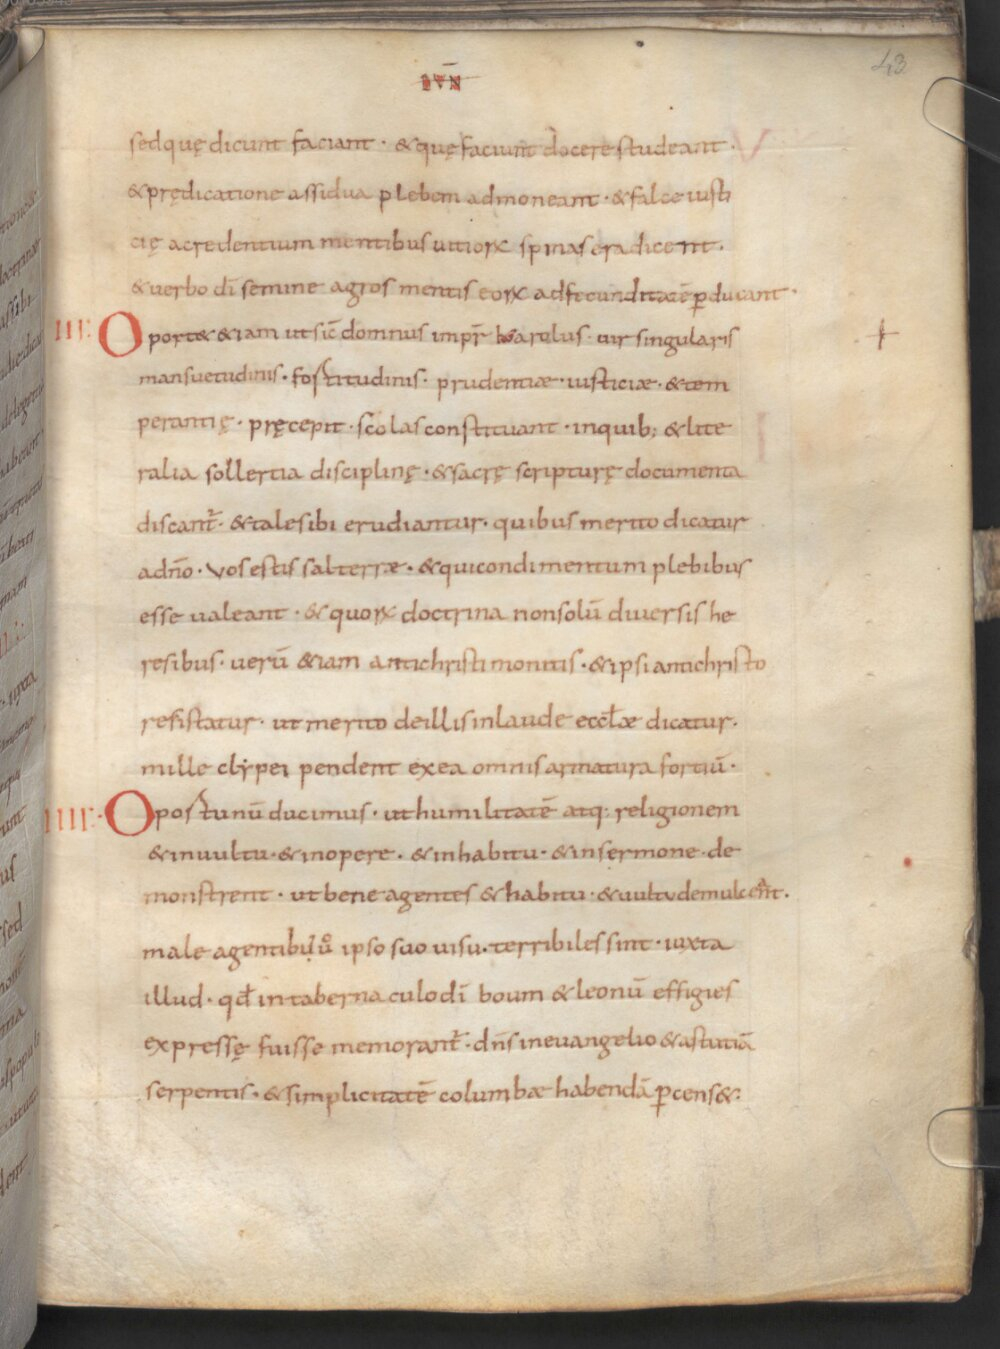 43
IVN̄
sed quę dicunt faciant · & quę faciunt docere studeant ·
& prędicatione assidua plebem admoneant · & falce iusti
cię acredentium mentibus uitiorꝝ spinas eradicent ·
& uerbo dī semine agros mentis eorꝝ ad fecunditatē ꝑducant ·
III· Oport& &iam ut sic̄ domnus impr̄ karolus · uir singularis
mansuetudinis · fortitudinis · prudentiae · iusticiae · & tem
perantię · pręcepit · scolas constituant · in quib; & lite
ralia sollertia disciplinę · & sacrę scripturę documenta
discant᷑ · & tales ibi erudiantur · quibus merito dicatur
a dn̄o · vos estis sal terrae · & qui condimentum plebibus
esse ualeant · & quorꝝ doctrina non solū diuersis he
resibus · uerū &iam antichristi monitis · & ipsi antichristo
resistatur · ut merito de illis in laude eccłae dicatur ·
mille clẏpei pendent ex ea omnis armatura fortiū ·
IIII· Oportunū ducimus · ut humilitatē atq: religionem
& in uultu · & in opere · & in habitu · & in sermone · de
monstrent · ut bene agentes & habitu · & uultu demulceant ·
male agentibus uͦ ipso suo uisu · terribiles sint · iuxta
illud · qđ in tabernaculo dī boum & leonū effigies
expressę fuisse memorant᷑ · dn̄s in euangelio & astutiā
serpentis · & simplicitatē columbae habendā ꝑcens& ·